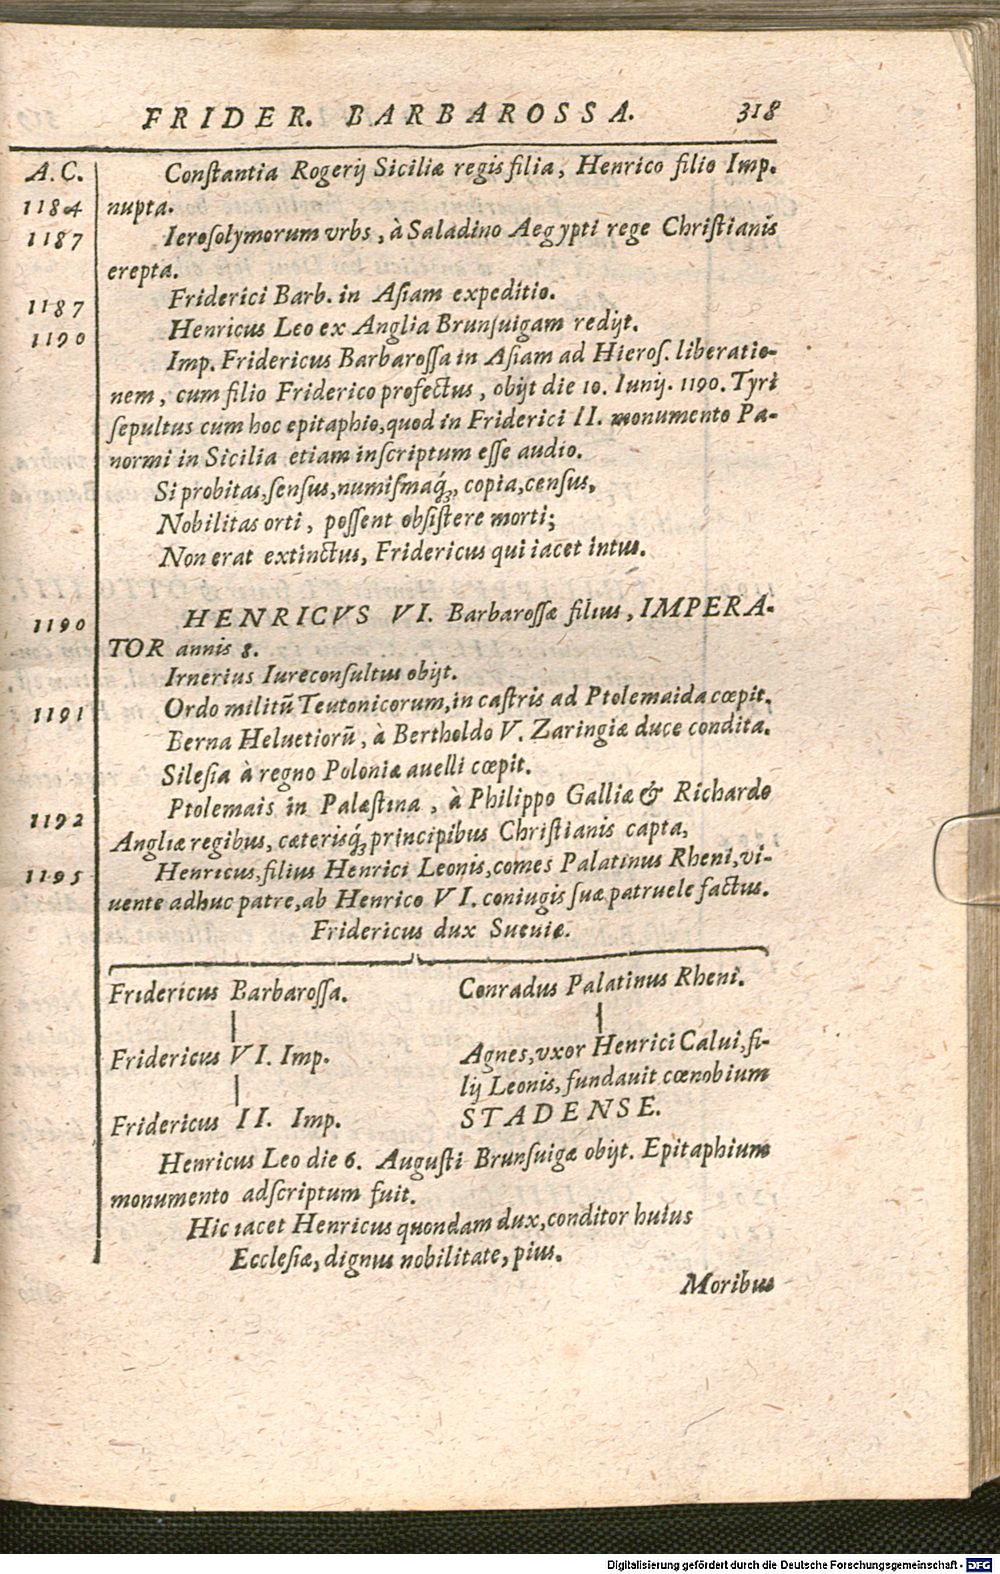 FRIDER. BARBAROSSA. 318
A.C. Conſtantia Rogerij Siciliæ regis filia, Henrico filio Imp.
1184 nupta.
1187 Ieroſolymorum vrbs, à Saladino Aegypti rege Chriſtianis
erepta.
1187 Friderici Barb. in Aſiam expeditio.
1190 Henricus Leo ex Anglia Brunſuigam redijt.
Imp. Fridericus Barbaroſſa in Aſiam ad Hieroſ. liberatio-
nem, cum filio Friderico profectus, obijt die 10. Iunij. 1190. Tyri
ſepultus cum hoc epitaphio, quod in Friderici II. monumento Pa-
normi in Sicilia etiam inſcriptum eſſe audio.
Si probitas, ſenſus, numiſmaq́;, copia, cenſus,
Nobilitas orti, poſſent obſiſtere morti;
Non erat extinctus, Fridericus qui iacet intus.
1190 HENRICVS VI. Barbaroſſæ filius, IMPERA-
TOR annis 8.
Irnerius Iureconſultus obijt.
1191 Ordo militũ Teutonicorum, in caſtris ad Ptolemaida cœpit.
Berna Heluetiorũ, à Bertholdo V. Zaringiæ duce condita.
Sileſia à regno Poloniæ auelli cœpit.
1192 Ptolemais in Palæſtina, à Philippo Galliæ & Richardo
Angliæ regibus, cæterisq́; principibus Chriſtianis capta,
1195 Henricus, filius Henrici Leonis, comes Palatinus Rheni, vi-
uente adhuc patre, ab Henrico VI. coniugis ſuæ patruele factus.
Fridericus dux Sueuiæ.
Fridericus Barbaroſſa. Conradus Palatinus Rheni.
Fridericus VI. Imp. Agnes, vxor Henrici Calui, fi-
lij Leonis, fundauit cœnobium
Fridericus II. Imp. STADENSE.
Henricus Leo die 6. Auguſti Brunſuigæ obijt. Epitaphium
monumento adſcriptum fuit.
Hic iacet Henricus quondam dux, conditor huius
Eccleſiæ, dignus nobilitate, pius.
Moribus
Digitalisierung gefördert durch die Deutsche Forschungsgemeinschaft - DFG